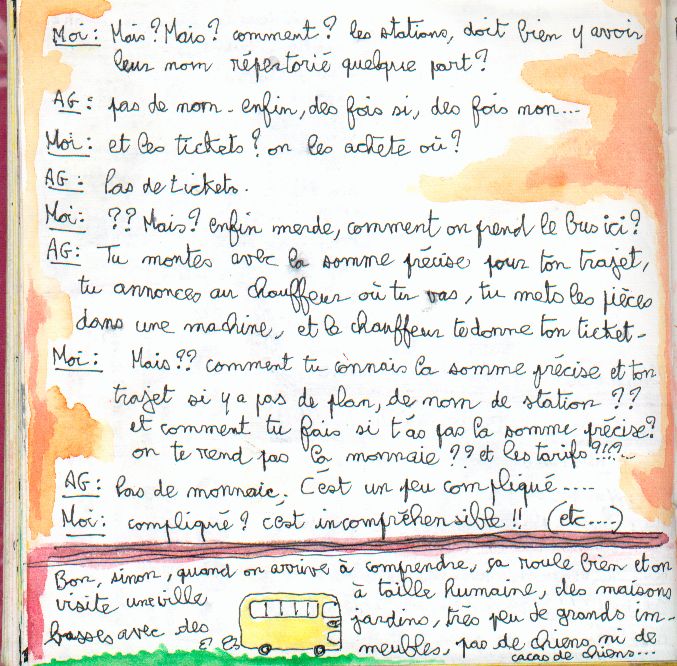 Moi : Mais? Mais? comment? les stations, doit bien y avoir
leur nom répertorié quelque part?
AG : pas de nom - enfin, des fois si, des fois non...
Moi : et les tickets? on les achète où?
AG : Pas de tickets.
Moi : ?? Mais? enfin merde, comment on prend le bus ici?
AG : Tu montes avec la somme précise pour ton trajet,
tu annonces au chauffeur où tu vas, tu mets les pièces
dans une machine, et le chauffeur te donne ton ticket -
Moi : Mais?? comment tu connais la somme précise et ton
trajet si y a pas de plan, de nom de station ??
et comment tu fais si t'as pas la somme précise?
on te rend pas la monnaie ?? et les tarifs?!!?...
AG : Pas de monnaie. C'est un peu compliqué.....
Moi : compliqué? c'est incompréhensible!! (etc....)
Bon, sinon, quand on arrive à comprendre, ça roule bien et on
visite une ville à taille humaine, des maisons
basses avec des jardins, très peu de grands im-
meubles, pas de chiens ni de
cacas de chiens...